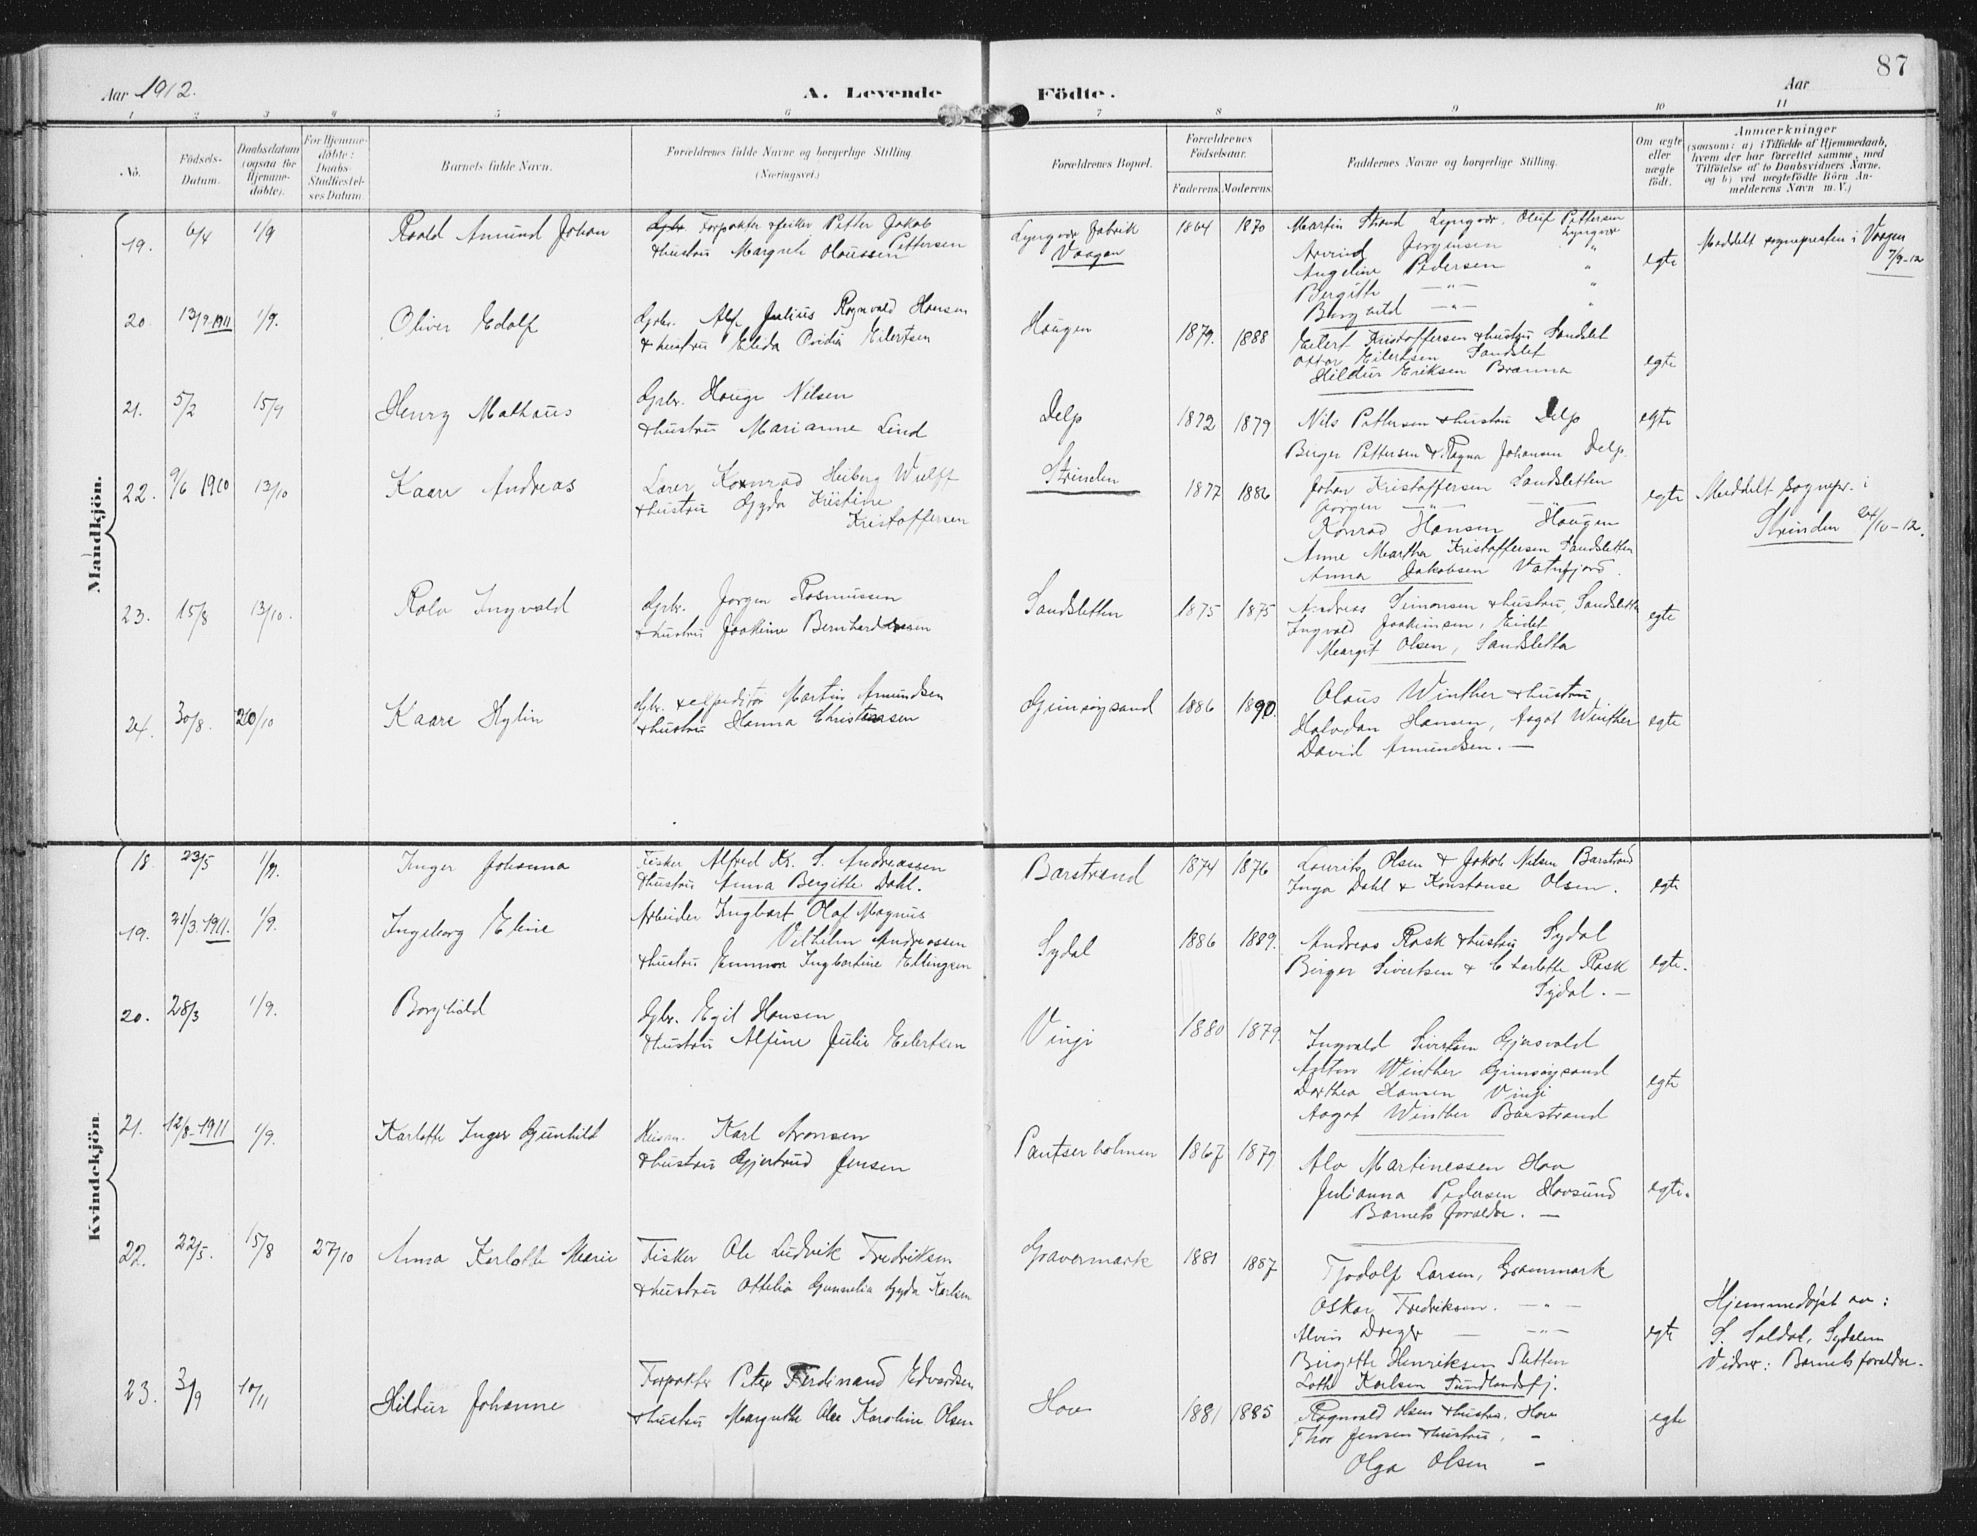 87
Aar 1912.
A. Levende Födte.
Aar
1 2 3 4 5 6 7 8 9 10 11
No.
Födsels-
Datum.
Daabsdatum
(ogsaa for
Hjemme-
döbte).
For Hjemme-
döbte:
Daabs-
Stadfæstel-
ses Datum.
Barnets fulde Navn.
Forældrenes fulde Navne og borgerlige Stilling
(Næringsvei.)
Forældrenes Bopæl.
Forældrenes
Födselsaar.
Faderens. Moderens.
Faddernes Navne og borgerlige Stilling.
Om ægte
eller
uægte
födt.
Anmærkninger
(saasom: a) i Tilfælde af Hjemmedaab,
hvem der har forrettet samme, med
Tilföielse af to Daabsvidners Navne,
og b) ved uægtefödte Börn An-
melderens Navn m. V.)
Mandkjön.
19. 6/4 1/9 Roald Amund Johan
Gbr. Forpakter & fisker Petter Jakob
Pettersen
& hustru Margreth Olaussen
Lyngvær fabrik
Vaagan
1864 1870
Martin Strand Lyngvær. Oluf Pettersen
Lyngvær
Arvind Jørgensen "
Angeline Pedersen "
Bergithe —"— "
Borghild —"— "
egte
Meddelt sognepresten i Vaagan
7/9-12
20. 13/9 1911 1/9. Oliver Edolf
Gbr. Alf Julius Rognvald Hansen
& hustru Elida Ovidia Eilertsen
Haugen
1879. 1888
Eilert Kristoffersen & hustru Sandslet
Oskar Eilertsen Sandslet
Hildur Eriksen Brenna
egte
21. 5/2 15/9 Henry Mathæus
Gbr. Hauge Nilsen
& hustru Marianne Lind
Delp
1872 1879
Nils Pettersen & hustru Delp
Birger Pettersen & Ragna Johansen Delp.
egte
22. 9/6 1910 13/10 Kaare Andreas
Lærer Konrad Heiberg Wulff
& hustru Gyda Kristine
Kristoffersen
Strinden
1877 1886
Johan Kristoffersen Sandsletten
Jørgen —"—
Konrad Hansen Haugen
Anne Martha Kristoffersen Sandsletten
Anna Jakobsen Vatnfjord.
egte
Meddelt sognepr. i
Strinden 24/10-12.
23. 15/8 13/10. Rolv Ingvald
Gbr. Jørgen Rasmussen
& hustru Joakime Bernhardsen
Sandsletten
1875 1875
Andreas Simonsen & hustru, Sandslette
Ingvald Joakimsen, Eidet
Margit Olsen, Sandsletta
egte
24. 30/8. 20/10 Kaare Hylin
Gbr. & expeditør Martin Amundsen
& hustru Hanna Christensen
Gimsøysand
1886 1890.
Olaus Winther & hustru
Halvdan Hansen, Aagot Winther
David Amundsen. —
egte
Kvindekjön.
18. 23/5 1/9. Inger Johanna
Fisker Alfred Kr. S. Andreassen
& hustru Anna Bergitte Dahl.
Barstrand
1874 1876
Laurits Olsen & Jakob Nilsen Barstrand
Inga Dahl & Konstanse Olsen.
egte
19. 21/3. 1911. 1/9. Ingeborg Eline
Arbeider Ingbart Olaf Magnus
Vilhelm Andreassen
& hustru Emma Ingbartine Ellingsen
Sydal
1886 1889.
Andreas Rask & hustru Sydal
Birger Sivertsen & Charlotte Rask
Sydal. —
egte.
20. 28/3 1/9. Borghild
Gbr. Egil Hansen
& hustru Alfine Julie Eilertsen
Vinje
1880 1879.
Ingvald Sivertsen Gjersvold
Anton Winther Gimsøysand
Dorthea Hansen Vinje
Aagot Winther Barstrand
egte
21. 12/8-1911 1/9. Karlotte Inger Gunhild
Husm. Karl Aronsen
& hustru Gjertrud Jensen
Pantserholmen
1867 1879
Alv Martinessen Hov
Julianna Pedersen Hovsund
Barnets forældre. —
egte.
22. 22/5. 15/8 27/10 Anna Karlotte Marie
Fisker Ole Ludvik Fredriksen
& hustru Ottelia Gunnelia Gyda Karlsen
Gravermark
1881 1887
Tjodolf Larsen, Gravermark
Oskar Fredriksen. —"—
Alvin Dreyer — —"—
Birgithe Henriksen Sletten
Lotte Karlsen Sundlandsfj.
egte
Hjemmedøpt av:
S. Soldal, Sydalen
Vidner: Barnets forældre.
23. 3/9 10/11 Hildur Johanne
Forpakter Peter Ferdinand Edvardsen
& hustru Margrethe Olea Karoline Olsen
Hov
1881 1885
Ragnvald Olsen & hustru, Hov
Thor Jensen & hustru. —
Olga Olsen —
egte